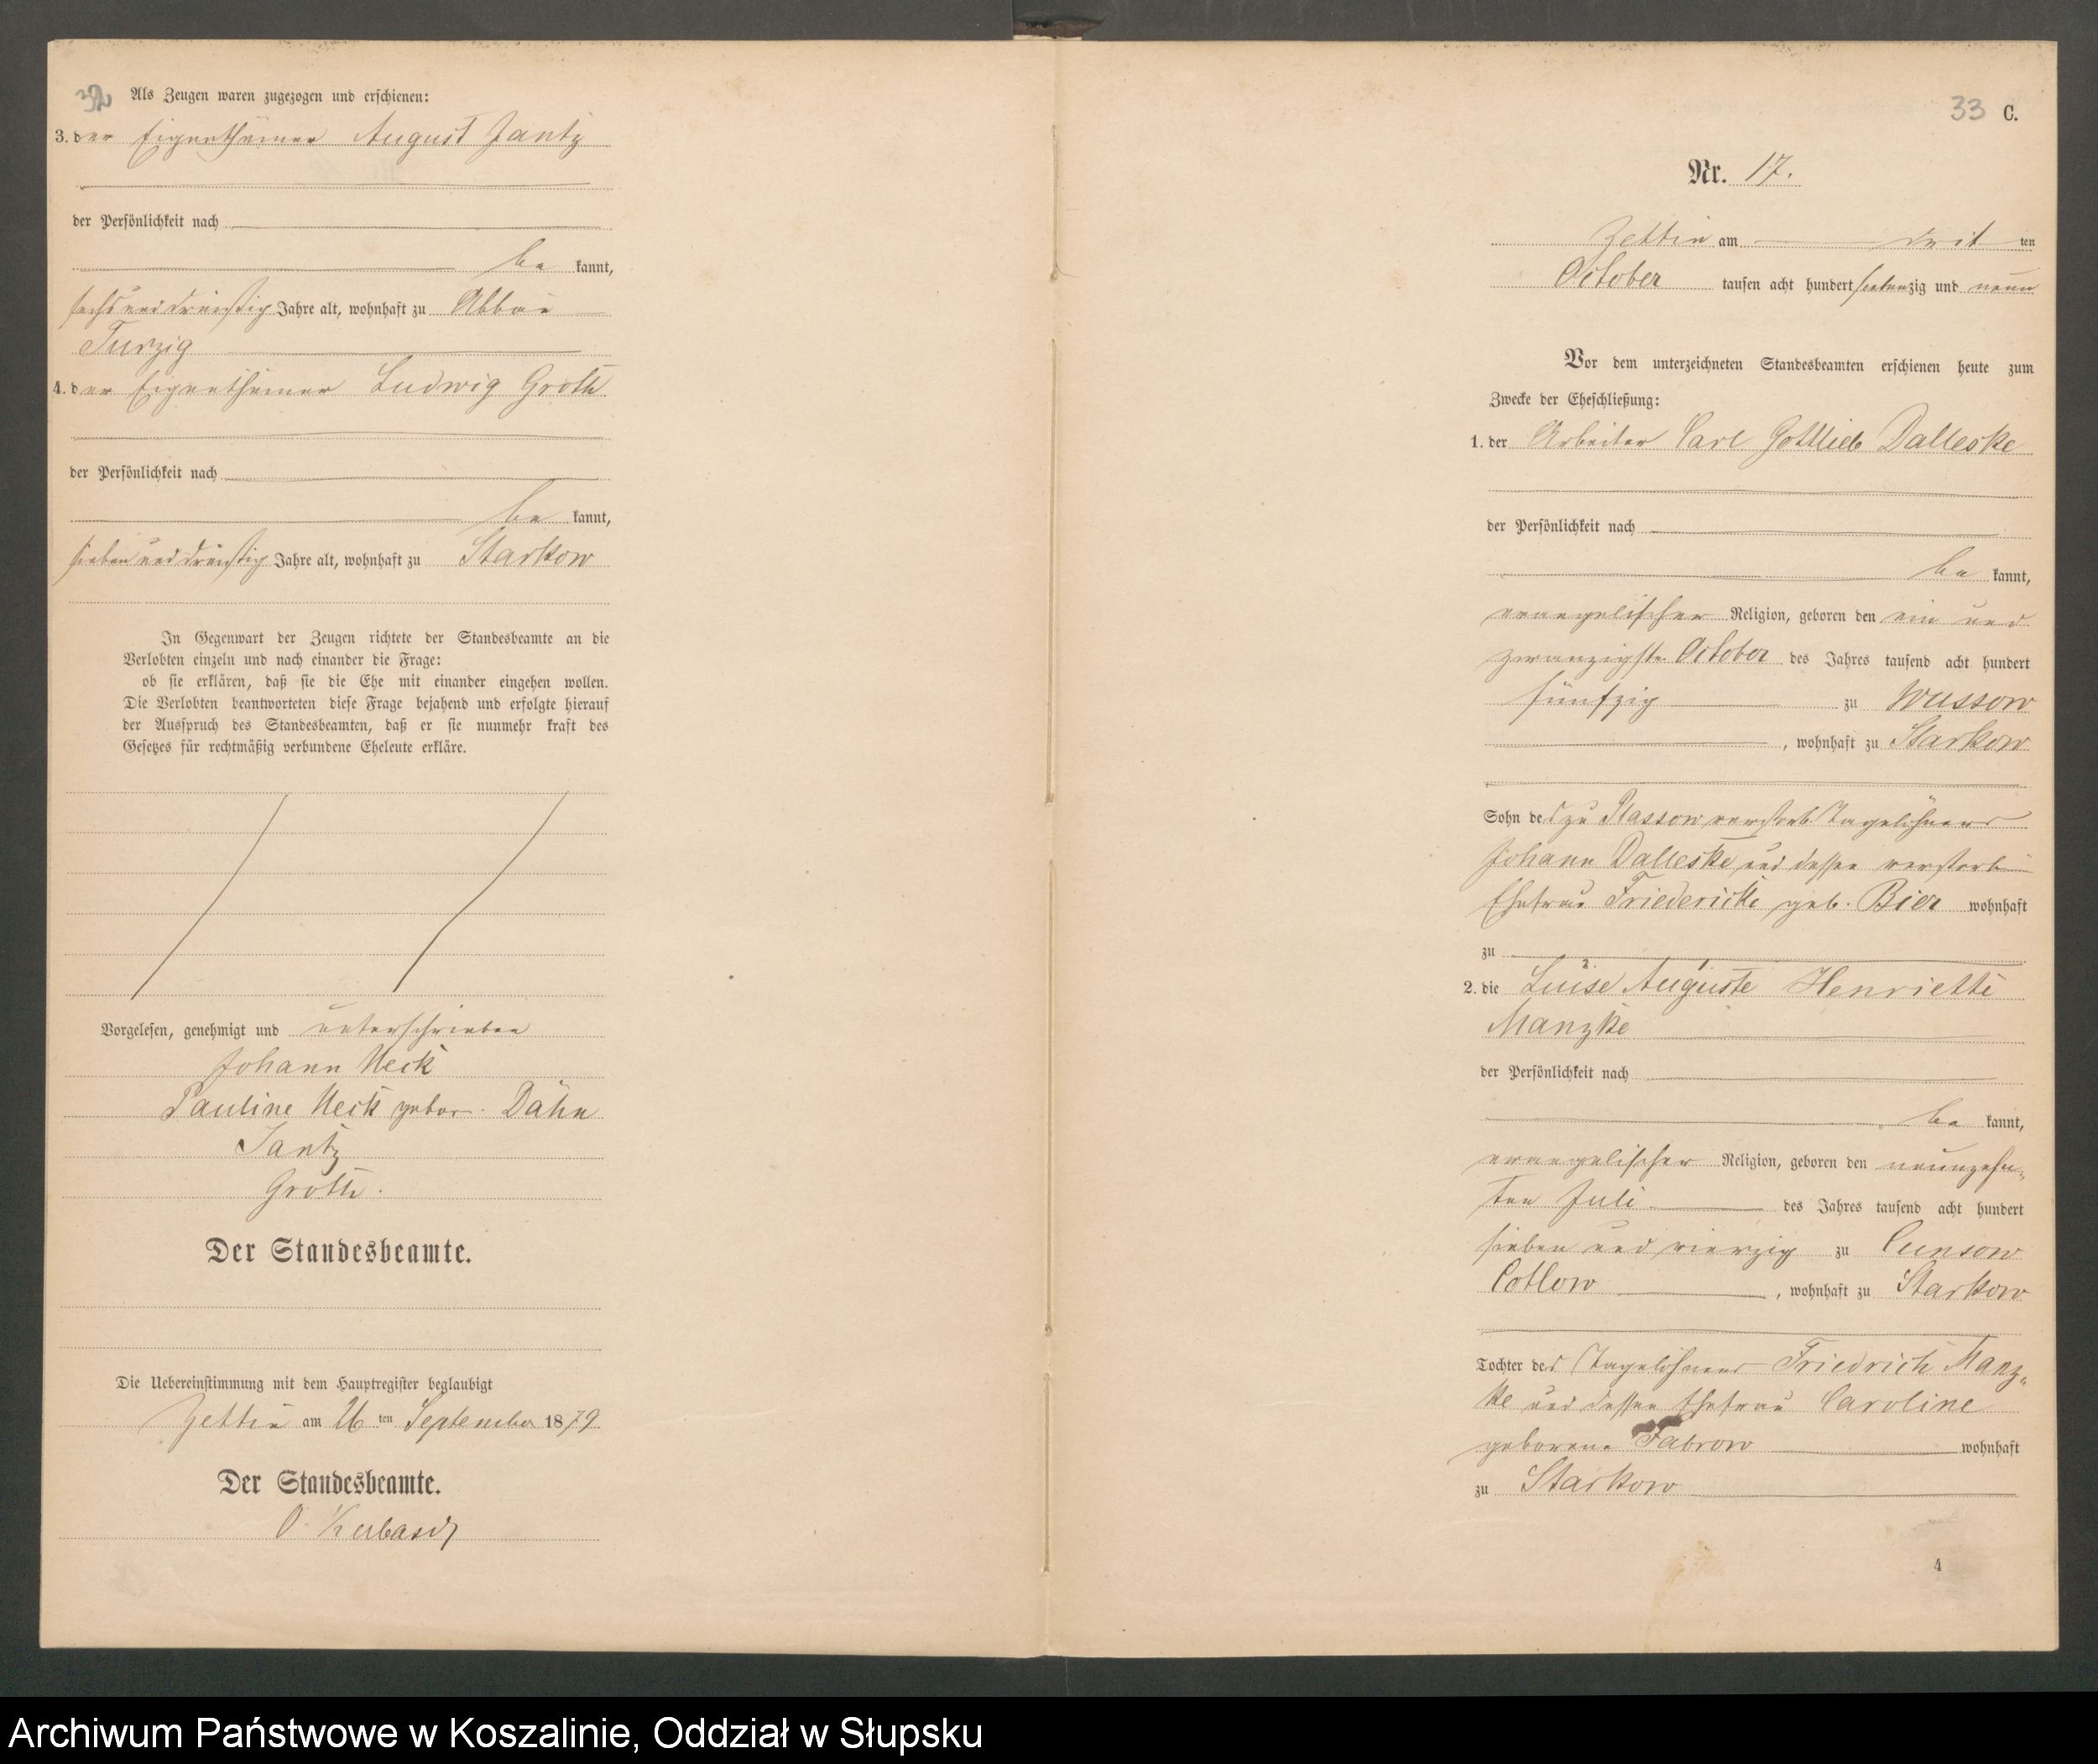 32
Als Zeugen waren zugezogen und erschienen:
3. der Eigenthümer August Jantz
der Persönlichkeit nach
be kannt,
sechs und dreißig Jahre alt, wohnhaft zu Abbau
Turzig
4. der Eigenthümer Ludwig Groth
der Persönlichkeit nach
be kannt,
sieben und dreißig Jahre alt, wohnhaft zu Starkow
In Gegenwart der Zeugen richtete der Standesbeamte an die
Verlobten einzeln und nach einander die Frage:
ob sie erklären, daß sie die Ehe mit einander eingehen wollen.
Die Verlobten beantworteten diese Frage bejahend und erfolgte hierauf
der Ausspruch des Standesbeamten, daß er sie nunmehr kraft des
Gesetzes für rechtmäßig verbundene Eheleute erkläre.
Vorgelesen, genehmigt und unterschrieben
Johann Heck
Pauline Heck gebor. Dähn
Jantz
Groth.
Der Standesbeamte.
Die Uebereinstimmung mit dem Hauptregister beglaubigt
Zettin am 26 ten September 1879
Der Standesbeamte.
33 C.
Nr. 17.
Zettin am drit ten
October tausen acht hundert siebenzig und neun
Vor dem unterzeichneten Standesbeamten erschienen heute zum
Zwecke der Eheschließung:
1. der Arbeiter Carl Gottlieb Dalleske
der Persönlichkeit nach
be kannt,
evangelischer Religion, geboren den ein und
zwanzigsten October des Jahres tausend acht hundert
fünfzig zu Wussow
, wohnhaft zu Starkow
Sohn des zu Plassow verstorb. Tagelöhners
Johann Dalleske und dessen verstorb
Ehefrau Friedericke geb. Bier wohnhaft
zu
2. 1
2. die Luise Auguste Henriette
Manzke
der Persönlichkeit nach
be kannt,
evangelischer Religion, geboren den neunzehn-
ten Juli des Jahres tausend acht hundert
sieben und vierzig zu Cunsow
Cotlow , wohnhaft zu Starkow
Tochter des Tagelöhners Friedrich Manz-
ke und dessen Ehefrau Caroline
geborene Fabrow wohnhaft
zu Starkow
4
Archiwum Państwowe w Koszalinie, Oddział w Słupsku